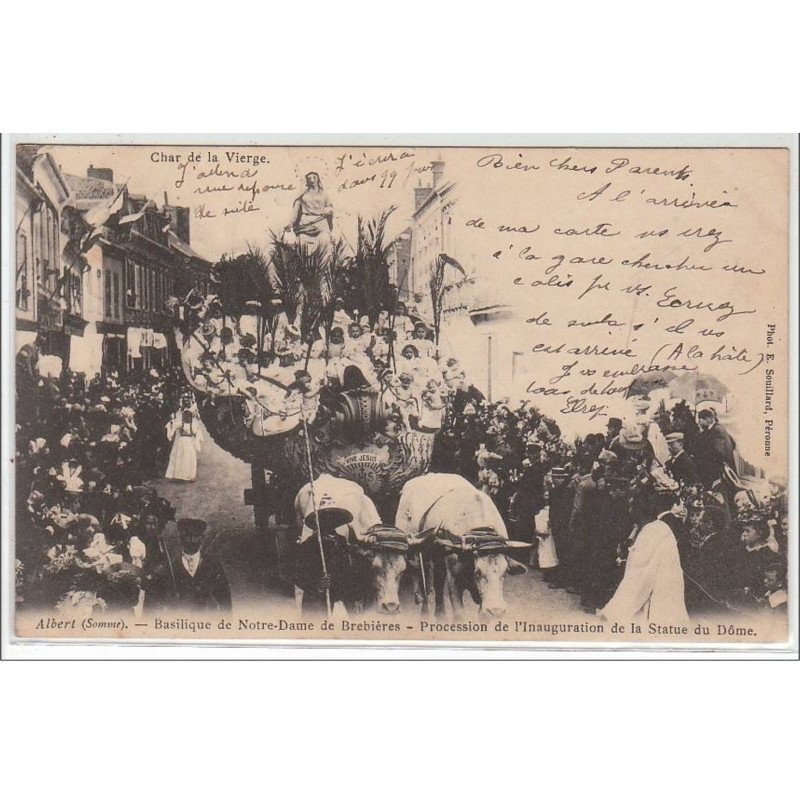 Char de la Vierge.
J'attend
une réponse
de suite
J'écrirai
dans
Bien chers Parents
A l'arrivée
de ma carte vs irez
à la gare chercher un
colis pr vs. Ecrivez
de suite s'il vs
est arrivé (A la hâte)
Je vs embrasse
tous
Phot. E. Souillard, Péronne
VIVE JESUS
Albert (Somme). — Basilique de Notre-Dame de Brebières - Procession de l'Inauguration de la Statue du Dôme.